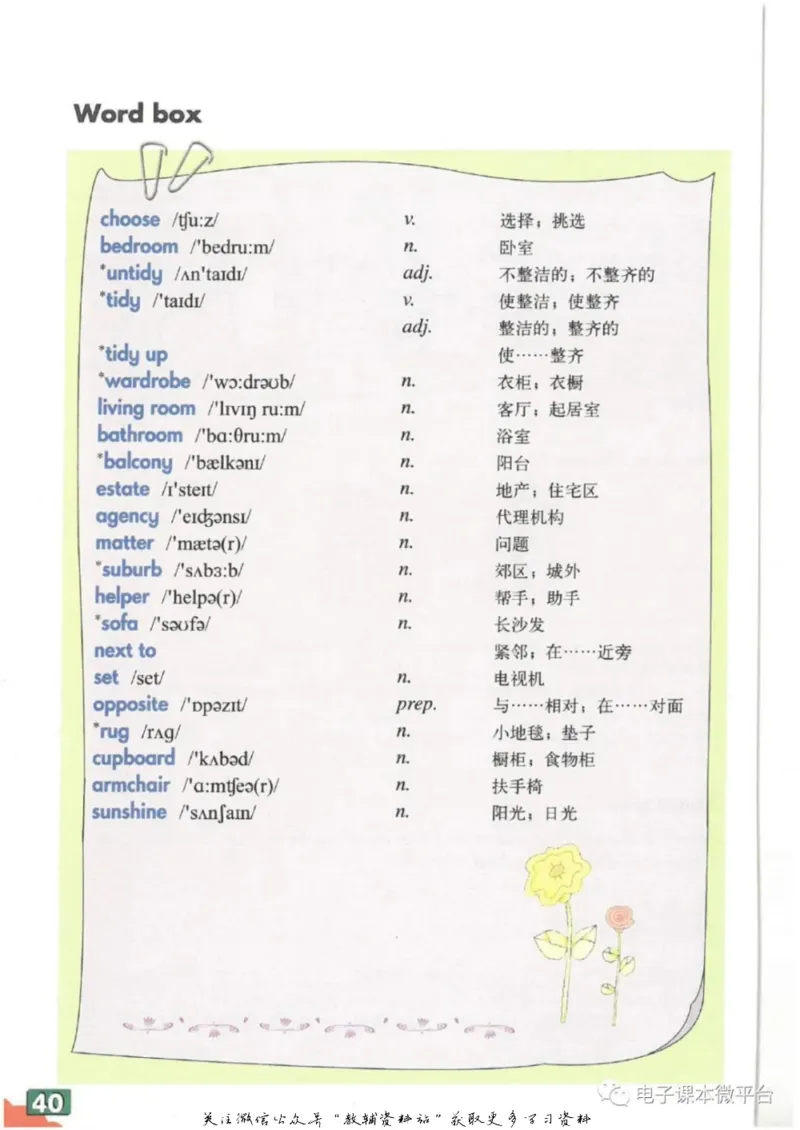 Word box
choose /tʃu:z/ v. 选择；挑选
bedroom /'bedru:m/ n. 卧室
*untidy /ʌn'taɪdɪ/ adj. 不整洁的；不整齐的
*tidy /'taɪdɪ/ v. 使整洁；使整齐
adj. 整洁的；整齐的
*tidy up 使……整齐
*wardrobe /'wɔ:drəʊb/ n. 衣柜；衣橱
living room /'lɪvɪŋ ru:m/ n. 客厅；起居室
bathroom /'bɑ:θru:m/ n. 浴室
*balcony /'bælkənɪ/ n. 阳台
estate /ɪ'steɪt/ n. 地产；住宅区
agency /'eɪdʒənsɪ/ n. 代理机构
matter /'mætə(r)/ n. 问题
*suburb /'sʌbɜ:b/ n. 郊区；城外
helper /'helpə(r)/ n. 帮手；助手
*sofa /'səʊfə/ n. 长沙发
next to 紧邻；在……近旁
set /set/ n. 电视机
opposite /'ɒpəzɪt/ prep. 与……相对；在……对面
*rug /rʌg/ n. 小地毯；垫子
cupboard /'kʌbəd/ n. 橱柜；食物柜
armchair /'ɑ:mtʃeə(r)/ n. 扶手椅
sunshine /'sʌnʃaɪn/ n. 阳光；日光
电子课本微平台
40
关注微信公众号“教辅资料站”获取更多学习资料